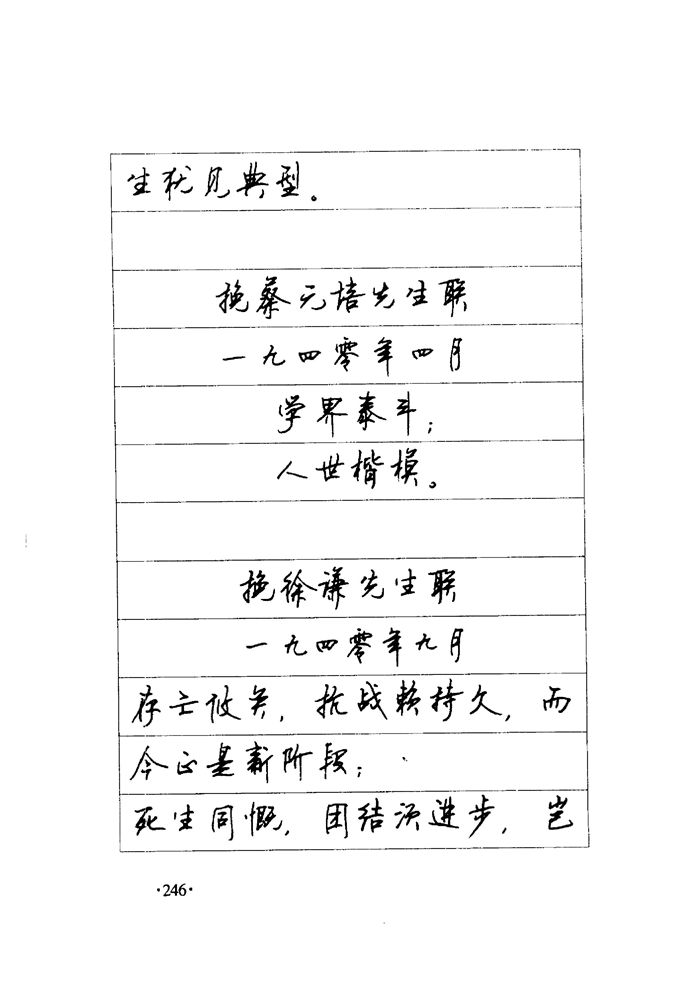 生犹见典型。
挽蔡元培先生联
一九四零年四月
学界泰斗；
人世楷模。
挽徐谦先生联
一九四零年九月
存亡攸关，抗战赖持久，而
今正是新阶段；
死生同慨，团结须进步，岂
·246·